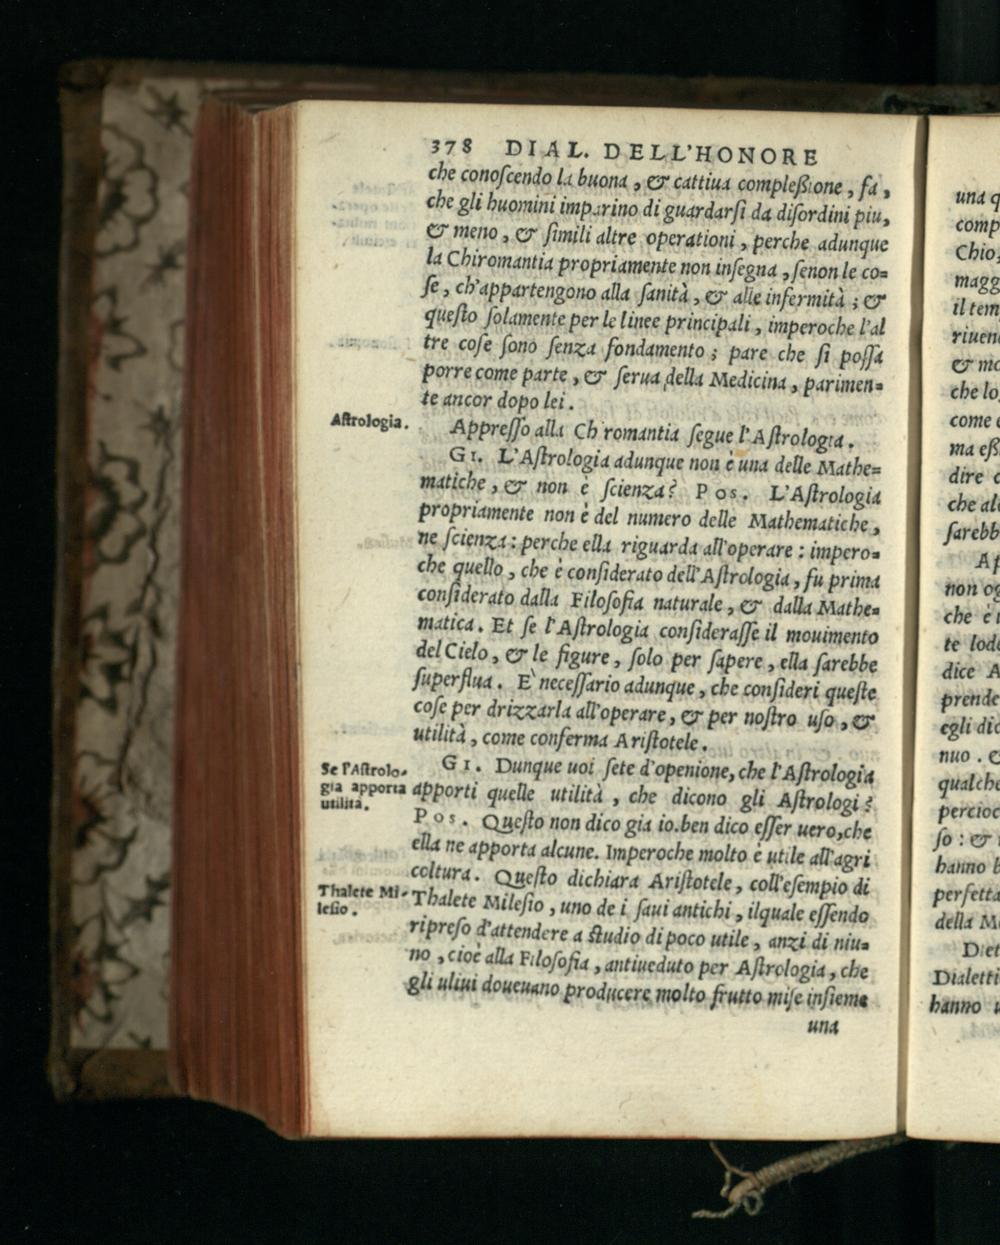 378 DIAL. DELL'HONORE
che conoſcendo la buona, & cattiua compleßione, fa,
che gli huomini imparino di guardarſi da diſordini piu,
& meno, & ſimili altre operationi, perche adunque
la Chiromantia propriamente non inſegna, ſenon le co=
ſe, ch'appartengono alla ſanità, & alle infermità; &
queſto ſolamente per le linee principali, imperoche l'al
tre coſe ſono ſenza fondamento; pare che ſi poſſa
porre come parte, & ſerua della Medicina, parimen=
te ancor dopo lei.
Aſtrologia.
Appreſſo alla Ch romantia ſegue l'Aſtrologia.
GI. L'Aſtrologia adunque non è una delle Mathe=
matiche, & non è ſcienza? POS. L'Aſtrologia
propriamente non è del numero delle Mathematiche,
ne ſcienza: perche ella riguarda all'operare: impero=
che quello, che è conſiderato dell'Aſtrologia, fu prima
conſiderato dalla Filoſofia naturale, & dalla Mathe=
matica. Et ſe l'Aſtrologia conſideraſſe il mouimento
del Cielo, & le figure, ſolo per ſapere, ella ſarebbe
ſuperflua. E' neceſſario adunque, che conſideri queſte
coſe per drizzarla all'operare, & per noſtro uſo, &
utilità, come conferma Ariſtotele.
Se l'Aſtrolo-
gia apporta
utilità.
GI. Dunque uoi ſete d'openione, che l'Aſtrologia
apporti quelle utilità, che dicono gli Aſtrologi?
POS. Queſto non dico gia io. ben dico eſſer uero, che
ella ne apporta alcune. Imperoche molto è utile all'agri
coltura. Queſto dichiara Ariſtotele, coll'eſempio di
Thalete Mi-
leſio.
Thalete Mileſio, uno de i ſaui antichi, ilquale eſſendo
ripreſo d'attendere a ſtudio di poco utile, anzi di niu=
no, cioè alla Filoſofia, antiueduto per Aſtrologia, che
gli uliui doueuano producere molto frutto miſe inſieme
una
una q
comp
Chio,
magg
il tem
riuen
& mo
che lo
come
ma eß
dire
che al
ſarebb
Ap
non og
che è
te lode
dice A
prende
egli dic
nuo. &
qualche
percioc
ſo: &
hanno b
perfetta
della M
Diet
Dialetti
hanno